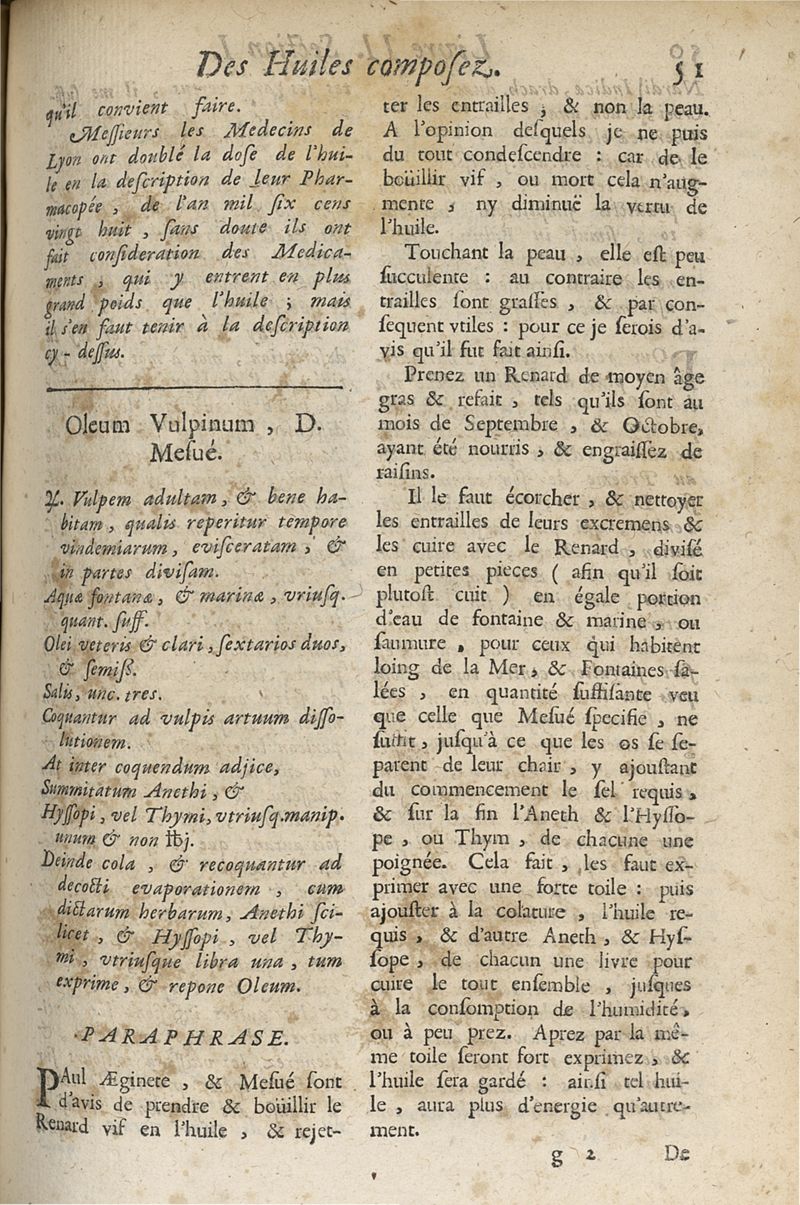 Des Huiles compoſez. 51
qu'il convient faire.
Meſſieurs les Medecins de
Lyon ont doublé la doſe de l'hui-
le en la deſcription de leur Phar-
macopée, de l'an mil ſix cens
vingt huit, ſans doute ils ont
fait conſideration des Medica-
ments, qui y entrent en plus
grand poids que l'huile; mais
il s'en faut tenir à la deſcription
cy-deſſus.
Oleum Vulpinum, D.
Meſué.
℞. Vulpem adultam, & bene ha-
bitam, qualis reperitur tempore
vindemiarum, eviſceratam, &
in partes diviſam.
Aquæ fontanæ, & marinæ, vriuſq.
quant. ſuff.
Olei veteris & clari, ſextarios duos,
& ſemiß.
Salis, unc. tres.
Coquantur ad vulpis artuum diſſo-
lutionem.
At inter coquendum adjice,
Summitatum Anethi, &
Hyſſopi, vel Thymi, vtriuſq. manip.
unum & non ℔j.
Deinde cola, & recoquantur ad
decocti evaporationem, cum
dictarum herbarum, Anethi ſci-
licet, & Hyſſopi, vel Thy-
mi, vtriuſque libra una, tum
exprime, & repone Oleum.
PARAPHRASE.
PAul Æginete, & Meſué ſont
d'avis de prendre & boüillir le
Renard vif en l'huile, & rejet-
ter les entrailles, & non la peau.
A l'opinion deſquels je ne puis
du tout condeſcendre : car de le
boüillir vif, ou mort cela n'aug-
mente, ny diminuë la vertu de
l'huile.
Touchant la peau, elle eſt peu
ſucculente : au contraire les en-
trailles ſont graſſes, & par con-
ſequent vtiles : pour ce je ſerois d'a-
vis qu'il fut fait ainſi.
Prenez un Renard de moyen âge
gras & refait, tels qu'ils ſont au
mois de Septembre, & Octobre,
ayant été nourris, & engraiſſez de
raiſins.
Il le faut écorcher, & nettoyer
les entrailles de leurs excremens &
les cuire avec le Renard, diviſé
en petites pieces ( afin qu'il ſoit
plutoſt cuit ) en égale portion
d'eau de fontaine & marine, ou
ſaumure, pour ceux qui habitent
loing de la Mer, & Fontaines ſa-
lées, en quantité ſuffiſante veu
que celle que Meſué ſpecifie, ne
ſuffit, juſqu'à ce que les os ſe ſe-
parent de leur chair, y ajouſtant
du commencement le ſel requis,
& ſur la fin l'Aneth & l'Hyſſo-
pe, ou Thym, de chacune une
poignée. Cela fait, les faut ex-
primer avec une forte toile : puis
ajouſter à la colature, l'huile re-
quis, & d'autre Aneth, & Hyſ-
ſope, de chacun une livre pour
cuire le tout enſemble, juſques
à la conſomption de l'humidité,
ou à peu prez. Aprez par la mê-
me toile ſeront fort exprimez, &
l'huile ſera gardé : ainſi tel hui-
le, aura plus d'energie qu'autre-
ment.
g 2 De